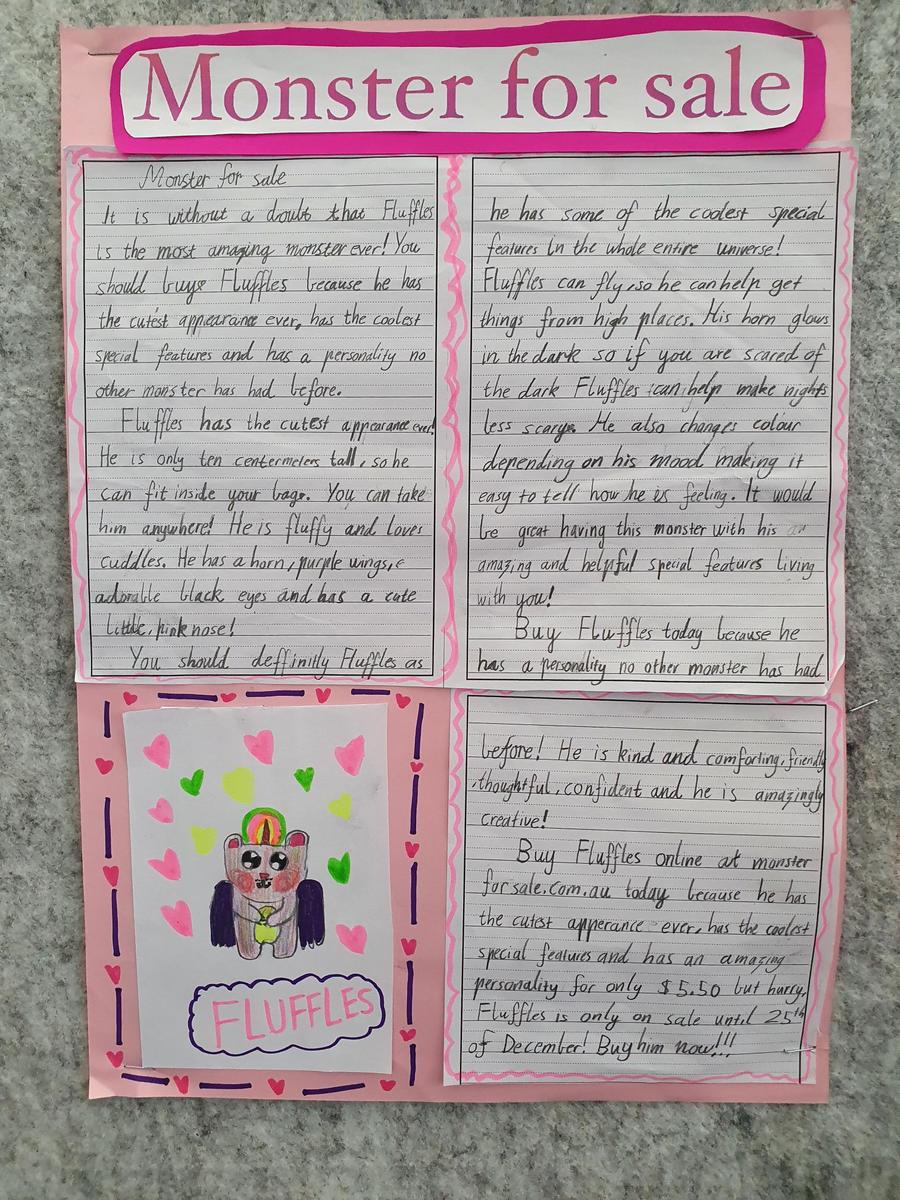 Monster for sale
Monster for sale
It is without a doubt that Fluffles
is the most amazing monster ever! You
should buys Fluffles because he has
the cutest appearance ever, has the coolest
special features and has a personality no
other monster has had before.
Fluffles has the cutest appearance ever!
He is only ten centermeters tall, so he
can fit inside your bags. You can take
him anywhere! He is fluffy and loves
cuddles. He has a horn, purple wings,
adorable black eyes and has a cute
little, pink nose!
You should deffinitly Fluffles as
he has some of the coolest special
features in the whole entire universe!
Fluffles can fly, so he can help get
things from high places. His horn glows
in the dark so if you are scared of
the dark Fluffles can help make nights
less scary. He also changes colour
depending on his mood making it
easy to tell how he is feeling. It would
be great having this monster with his
amazing and helpful special features living
with you!
Buy Fluffles today because he
has a personality no other monster has had
before! He is kind and comforting, friendly
, thoughtful, confident and he is amazingly
creative!
Buy Fluffles online at monster
for sale.com.au today because he has
the cutest apperance ever, has the coolest
special features and has an amazing
personality for only $5.50 but hurry,
Fluffles is only on sale until 25th
of December! Buy him now!!!
FLUFFLES